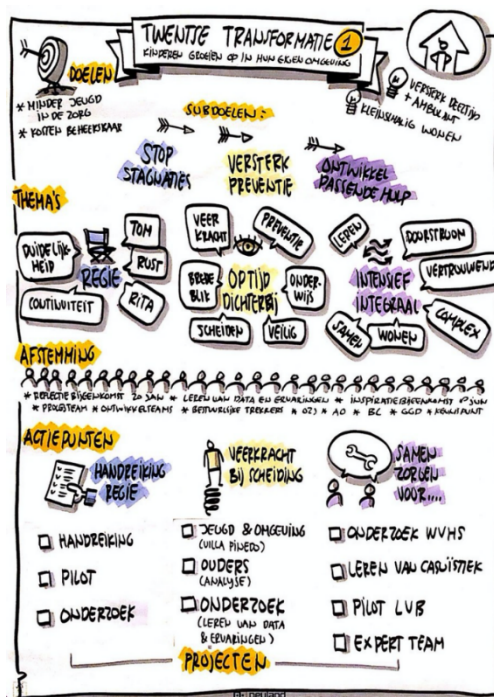 TWENTSE TRANSFORMATIE 1
KINDEREN GROEIEN OP IN HUN EIGEN OMGEVING
DOELEN
* MINDER JEUGD
IN DE ZORG
* KOSTEN BEHEERSBAAR
VERSTERK DEELTIJD
+ AMBULANT
KLEINSCHALIG WONEN
SUBDOELEN:
STOP
STAGNATIES
VERSTERK
PREVENTIE
ONTWIKKEL
PASSENDE HULP
THEMA'S
DUIDELIJK-
HEID
TOM
RUST
REGIE
CONTINUITEIT
RITA
VEER
KRACHT
PREVENTIE
BREDE
BLIK
OPTIJD
DICHTERBIJ
ONDER-
WIJS
SCHEIDEN
VEILIG
LEREN
DOORSTROOM
VERTROUWEND
INTENSIEF
INTEGRAAL
SAMEN
WONEN
COMPLEX
AFSTEMMING
* REFLECTIE BIJEENKOMST 20 JAN * LEREN VAN DATA EN ERVARINGEN * INSPIRATIEBIJEENKOMST JUN
* PROCESTEAM * ONTWIKKELTEAMS * BESTUURLIJKE TREKKERS * OZJ * AO * BC * GGD * KENNISPUNT
ACTIEPUNTEN
HANDREIKING
REGIE
VEERKRACHT
BIJ SCHEIDING
SAMEN
ZORGEN
VOOR....
HANDREIKING
PILOT
ONDERZOEK
JEUGD & OMGEVING
(VILLA PINEDO)
OUDERS
(ANALYSE)
ONDERZOEK
(LEREN VAN DATA
& ERVARINGEN)
ONDERZOEK WVHS
LEREN VAN CASUÏSTIEK
PILOT LVB
EXPERT TEAM
PROJECTEN
neuland